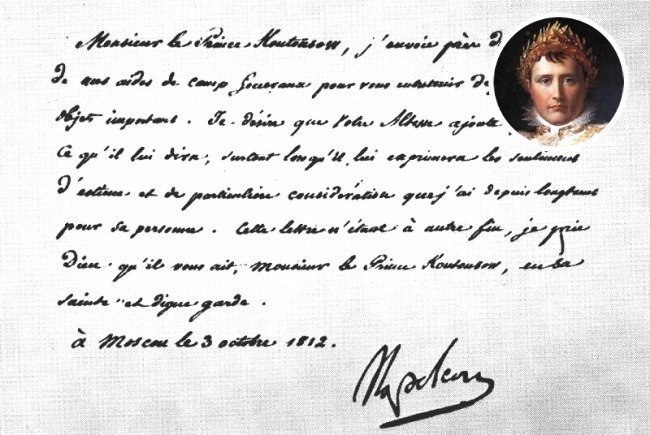 Monsieur le Prince Koutousow, j'envoie près d
de mes aides de camp Généraux pour vous entretenir de
objets importans. Je désire que Votre Altesse ajoute
Ce qu'il lui dira, surtout lorsqu'il lui exprimera les sentimens
d'estime et de particulière considération que j'ai depuis longtems
pour sa personne. Cette lettre n'étant à autre fin, je prie
Dieu qu'il vous ait, Monsieur le Prince Koutousow, en sa
sainte et digne garde.
à Moscou le 3 octobre 1812.
Napoleon